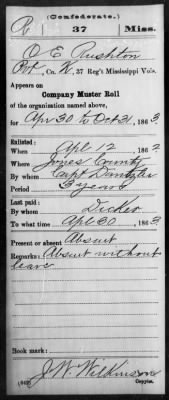 (Confederate.)
R 37 Miss.
O E Rushton
Pvt, Co. K, 37 Reg't Mississippi Vols.
Appears on
Company Muster Roll
of the organization named above,
for Apr 30 to Oct 31, 1863
Enlisted:
When Apl 12, 1862
Where Jones County
By whom Capt Dantzler
Period 3 years
Last paid:
By whom Dicker
To what time Apl 30, 1863
Present or absent Absent
Remarks: Absent without
leave
Book mark:
(642) J. W. Wilkinson
Copyist.